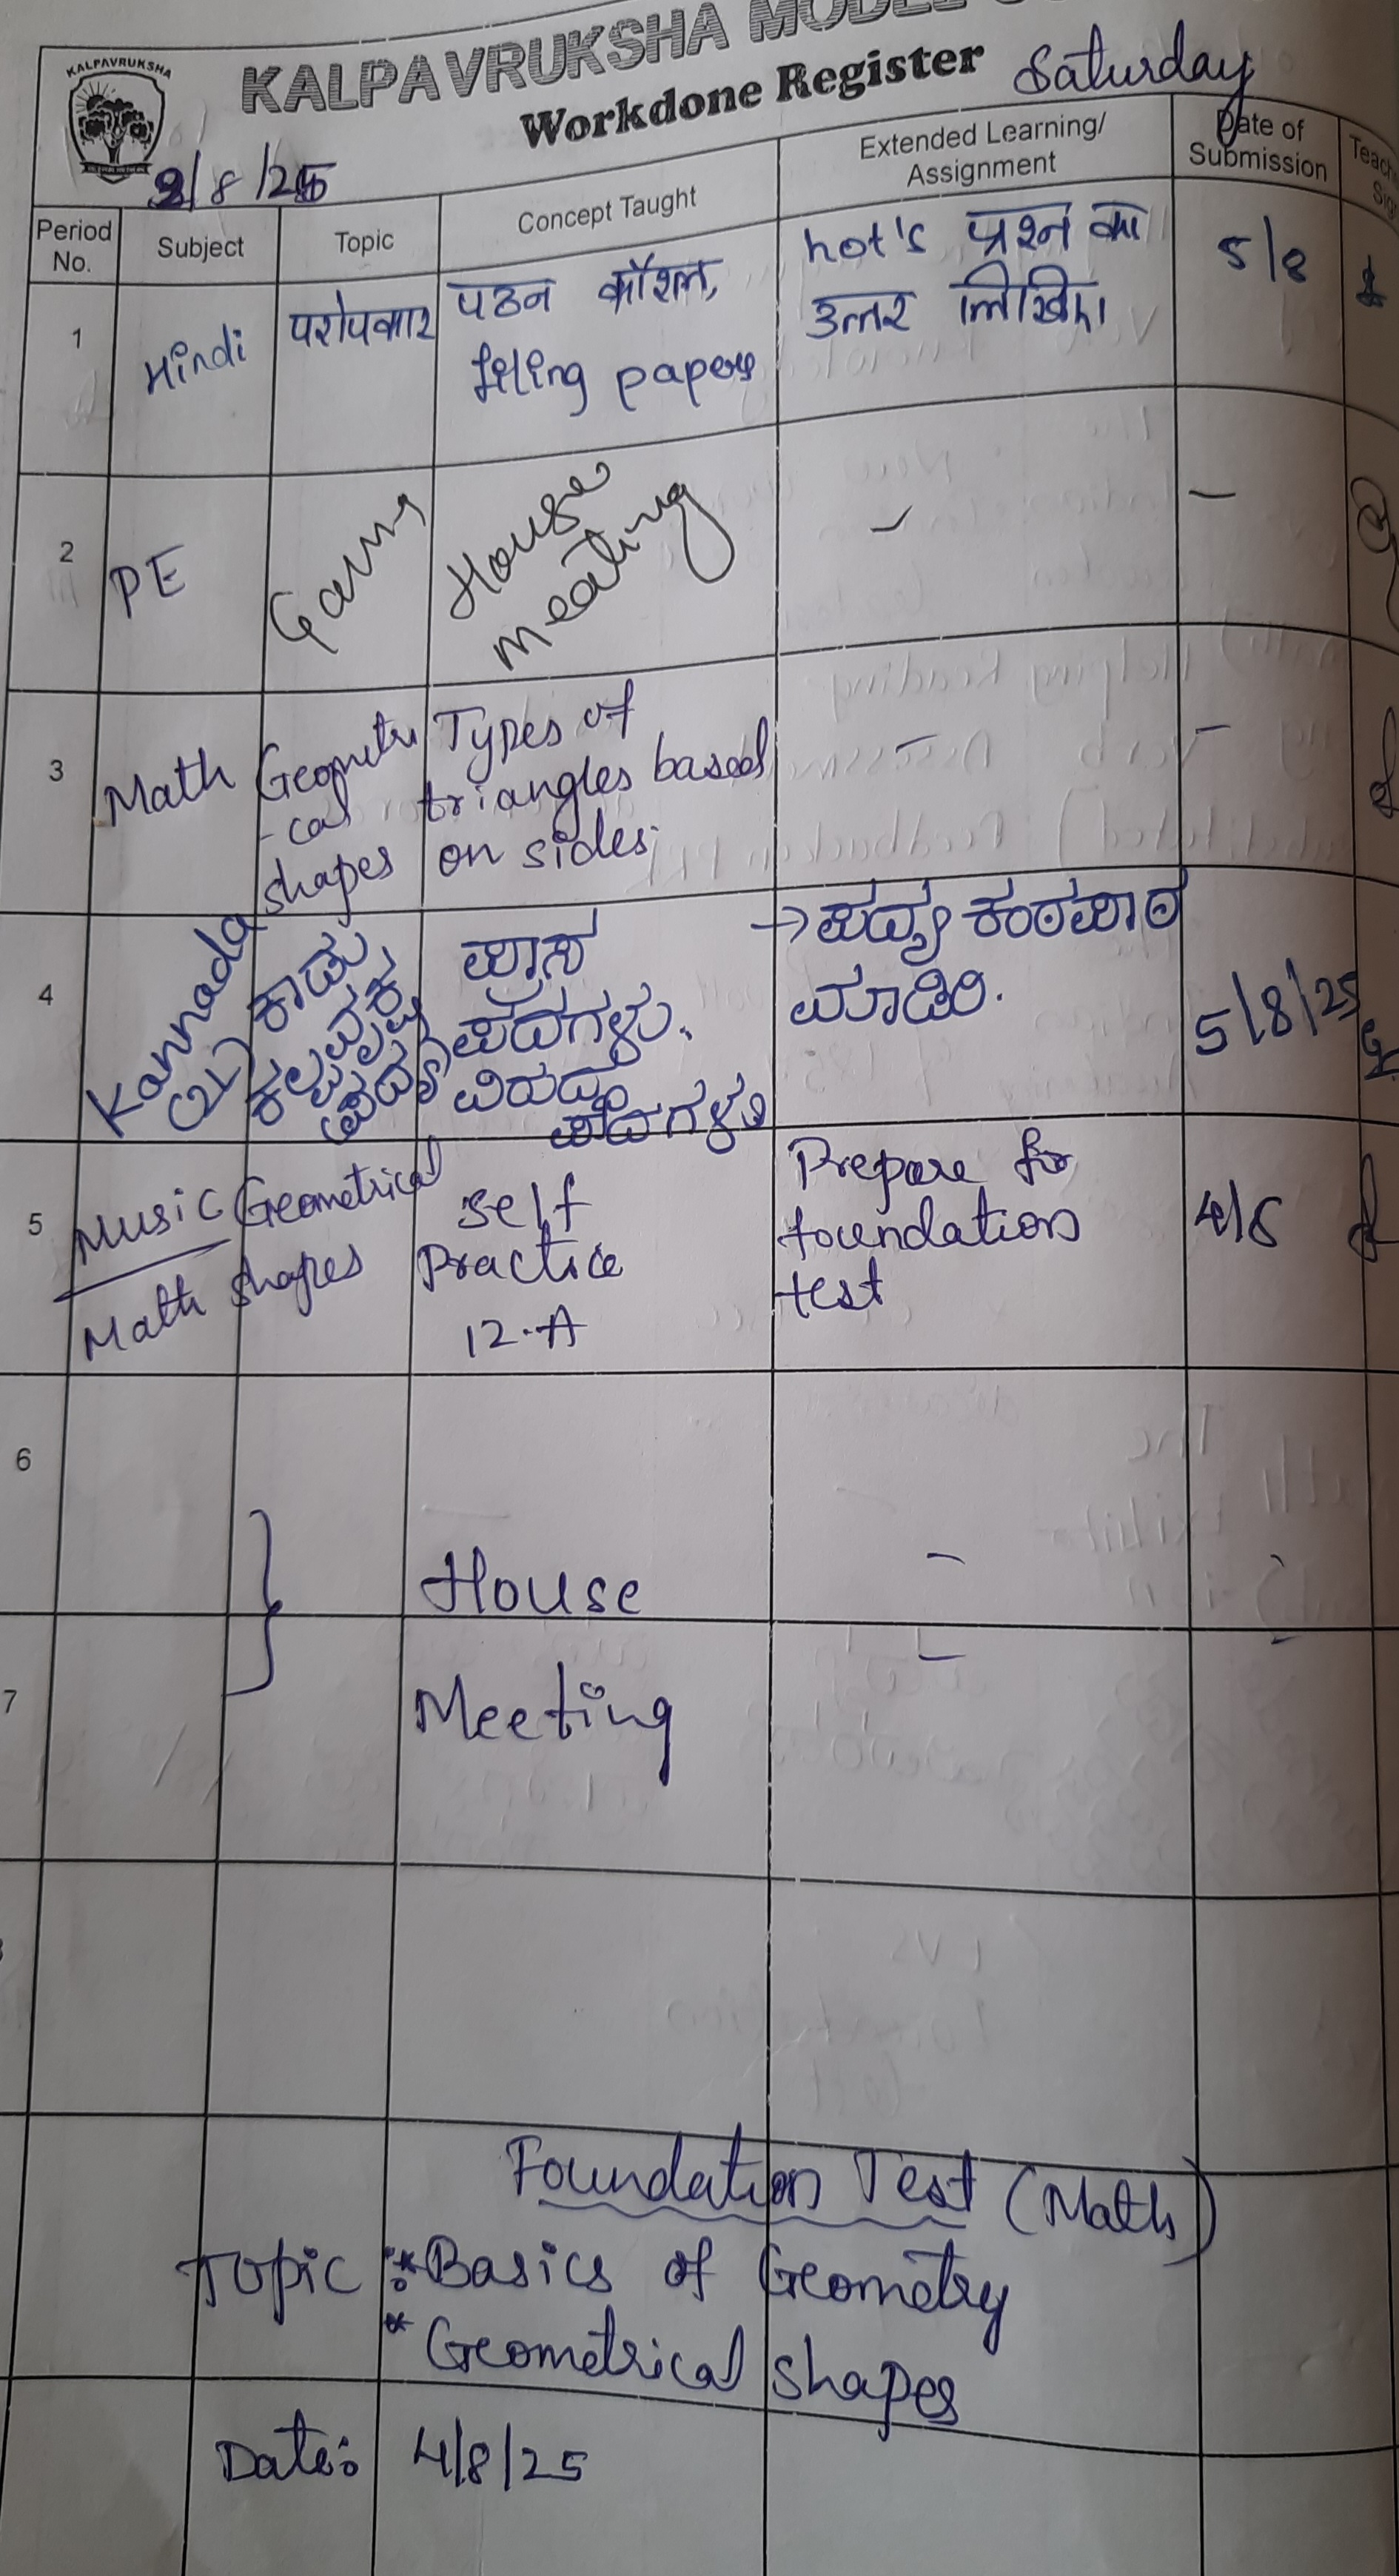 KALPAVRUKSHA MODEL
KALPAVRUKSHA
Workdone Register
Saturday
2/8/25
Period No.
Subject
Topic
Concept Taught
Extended Learning/
Assignment
Date of
Submission
1
Hindi
परोपकार
पठन कौशल,
filing papers
hot's प्रश्न का
उत्तर लिखिए।
5/8
2
PE
House
meating
-
-
3
Math
Geometri
-cal
shapes
Types of
triangles based
on sides.
-
-
4
Kannada
(2L)
ಕಾಡು
ಕಲ್ಪವೃಕ್ಷ
ಪದ್ಯ
ಪ್ರಾಸ
ಪದಗಳು.
ವಿರುದ್ಧ
ಪದಗಳು
→ ಪದ್ಯ ಕಂಠಪಾಠ
ಮಾಡಿರಿ.
5/8/25
5
Music
Math
Geometrical
shapes
Self
Practice
12.A
Prepare for
foundation
test
4/8
6
House
-
7
Meeting
-
Foundation Test (Math)
Topic : * Basics of Geometry
* Geometrical shapes
Date: 4/8/25